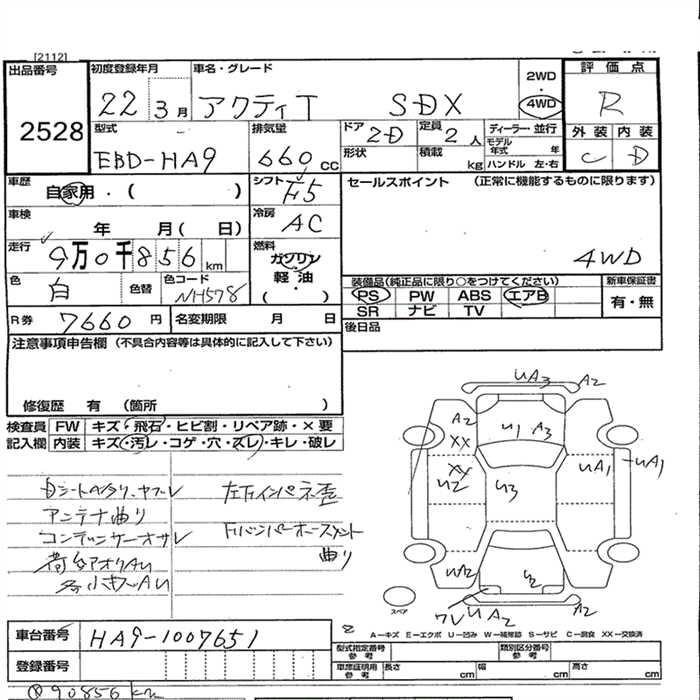 [2112]
出品番号
2528
初度登録年月
22 3月
車名・グレード
アクティT SDX
2WD
・
4WD
評価点
R
外装 内装
C D
型式
EBD-HA9
排気量
660cc
ドア
2D
定員
2人
ディーラー・並行
形状
積載
kg
モデル年式 年
ハンドル 左・右
車歴
自家用・( )
シフト
F5
セールスポイント (正常に機能するものに限ります)
4WD
車検
年 月( 日)
冷房
AC
走行
9万0千856km
燃料
ガソリン
軽油
( )
色
白
色替
色コード
NH578
装備品(純正品に限り○をつけてください)
PS PW ABS エアB
SR ナビ TV
新車保証書
有・無
R券 7660円
名変期限 月 日
後日品
注意事項申告欄(不具合内容等は具体的に記入して下さい)
修復歴 有 (箇所 )
検査員 FW キズ・飛石・ヒビ割・リペア跡・×要
記入欄 内装 キズ・汚レ・コゲ・穴・ズレ・キレ・破レ
アンテナ曲り
曲り
UA3 A2
A2 U1 A3
XX
XX
U2 U3 UA1 UA1
UA2 U2
UA2
スペア
A—キズ E—エクボ U—凹み W—補修跡 S—サビ C—腐食 XX—交換済
車台番号 HA9-1007651
登録番号
型式指定番号
参考
類別区分番号
参考
車庫証明用
参考
長さ cm 幅 cm 高さ cm
90856km